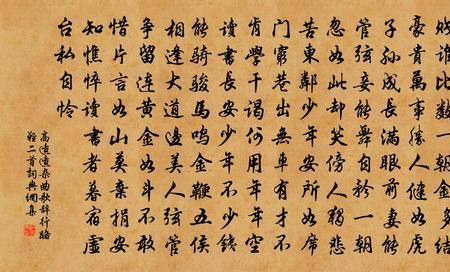 賤誰比數一朝金多結
豪貴萬事勝人健如虎
子孫成長滿眼前妻能
管弦妾能舞自矜一朝
忽如此却笑傍人獨悲
苦東鄰少年安所如席
門窮巷出無車有才不
肯學干謁何用年年空
讀書長安少年不少錢
能騎駿馬鳴金鞭五侯
相逢大道邊美人弦管
爭留連黃金如斗不敢
惜片言如山莫棄捐安
知憔悴讀書者暮宿虛
台私自憐
高適適雜曲歌辭行路
難二首詞典網集